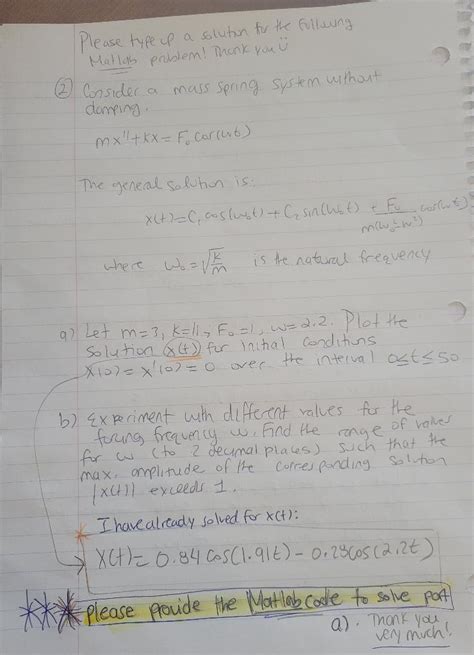 Please type up a solution for the following
Matlab problem! Thank you ü
② Consider a mass spring system without
damping.
mx"+kx = F₀ cos(ωt)
The general solution is:
x(t)=C₁cos(ω₀t)+C₂sin(ω₀t) + F₀/m(ω₀²-ω²) cos(ωt)
where ω₀=√k/m is the natural frequency
a) Let m=3, k=11, F₀=1, ω=2.2. Plot the
solution x(t) for initial conditions
x(0)=x'(0)=0 over the interval 0≤t≤50
b) Experiment with different values for the
forcing frequency ω. Find the range of values
for ω (to 2 decimal places) such that the
max. amplitude of the corresponding solution
|x(t)| exceeds 1.
* I have already solved for x(t):
X(t)= 0.84 cos(1.91t) - 0.28cos(2.2t)
*** please provide the Matlab code to solve part
a). Thank you
very much!